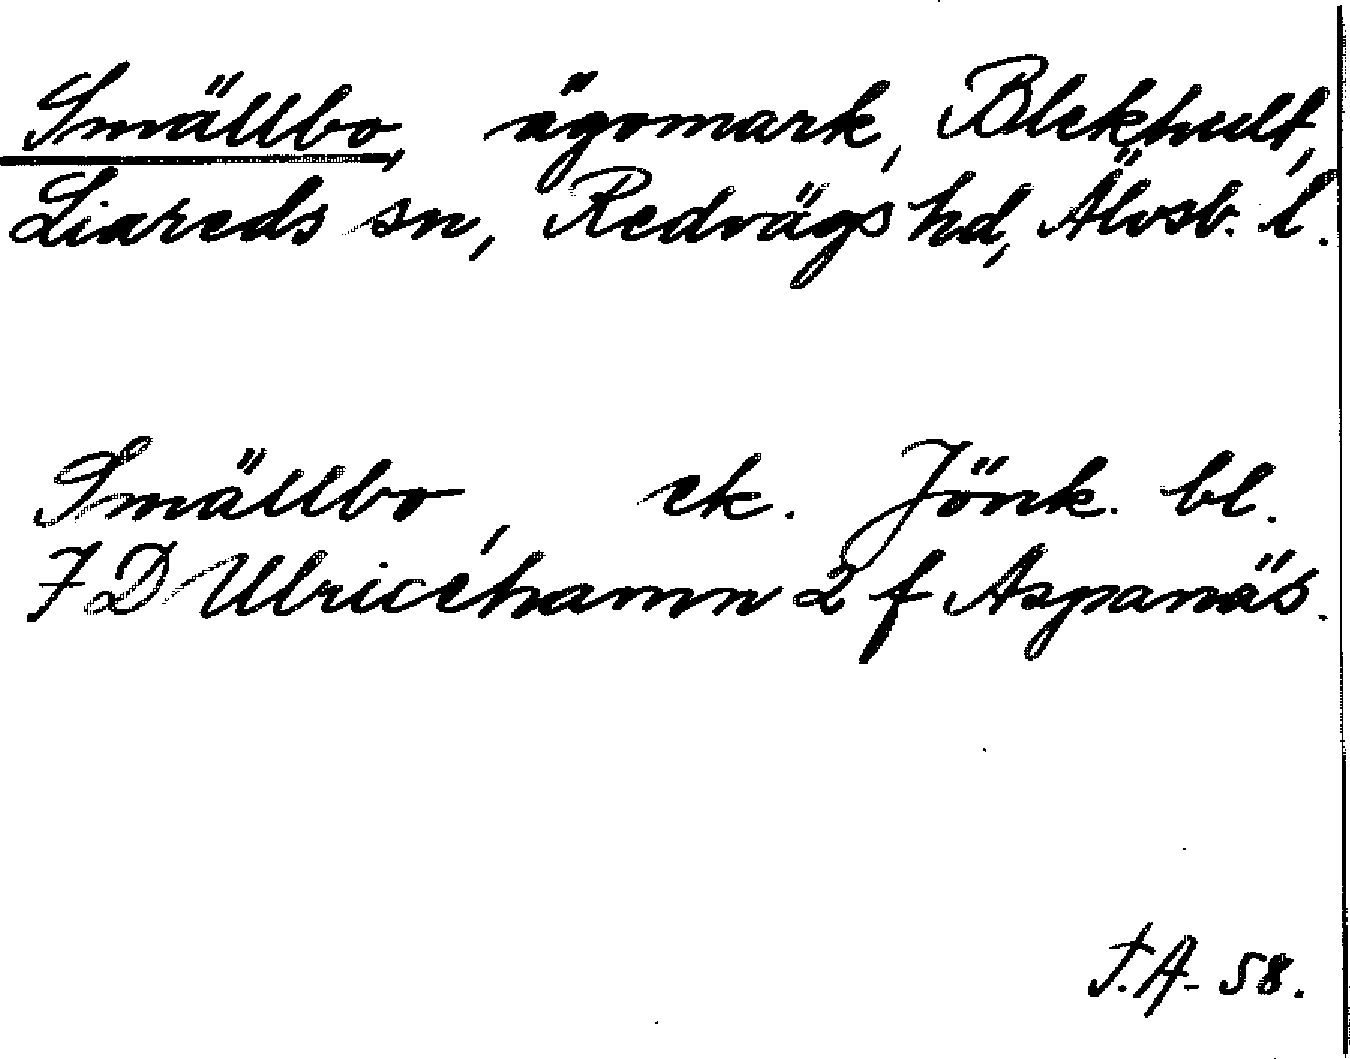 Smällbo, ägomark, Blekhult,
Liareds sn, Redvägs hd, Älvsb. l.
Smällbo, ek. Jönk. bl.
7 D Ulricehamn 2 f Aspanäs.
T.A- 58.